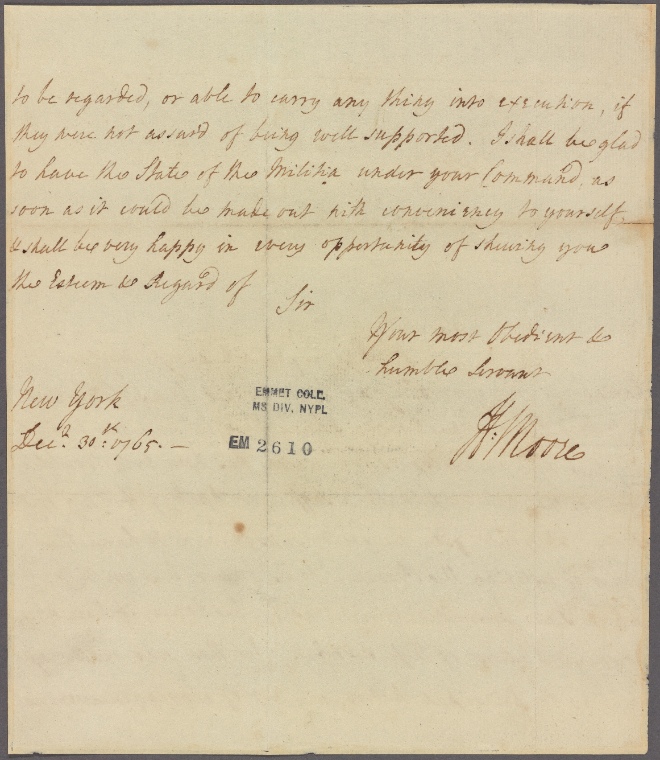 to be regarded, or able to carry any thing into execution, if
they were not assurd of being well supported. I shall be glad
to have the State of the Militia under your Command, as
soon as it could be made out with conveniency to yourself,
& shall be very happy in every opportunity of shewing you
the Esteem & Regard of
Sir
Your most Obedient &
humble Servant
New York
Decr. 30th. 1765. —
H: Moore
EMMET COLL.
MS DIV, NYPL
EM 2610